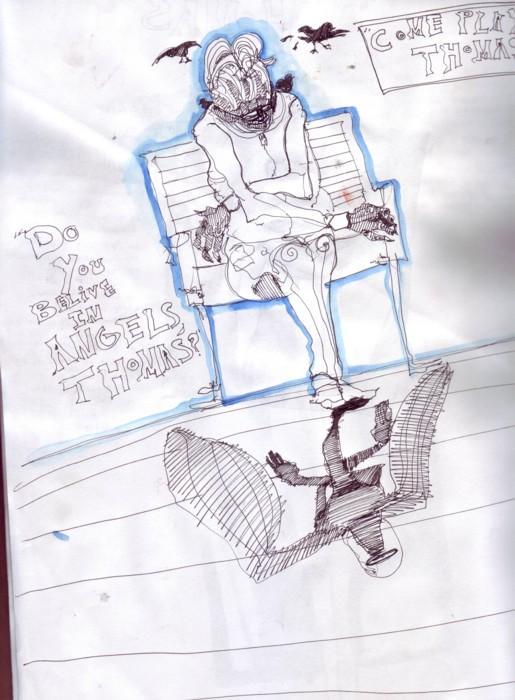 "COME PLAY
THOMAS
"DO
YOU
BELIVE
IN
ANGELS,
THOMAS?